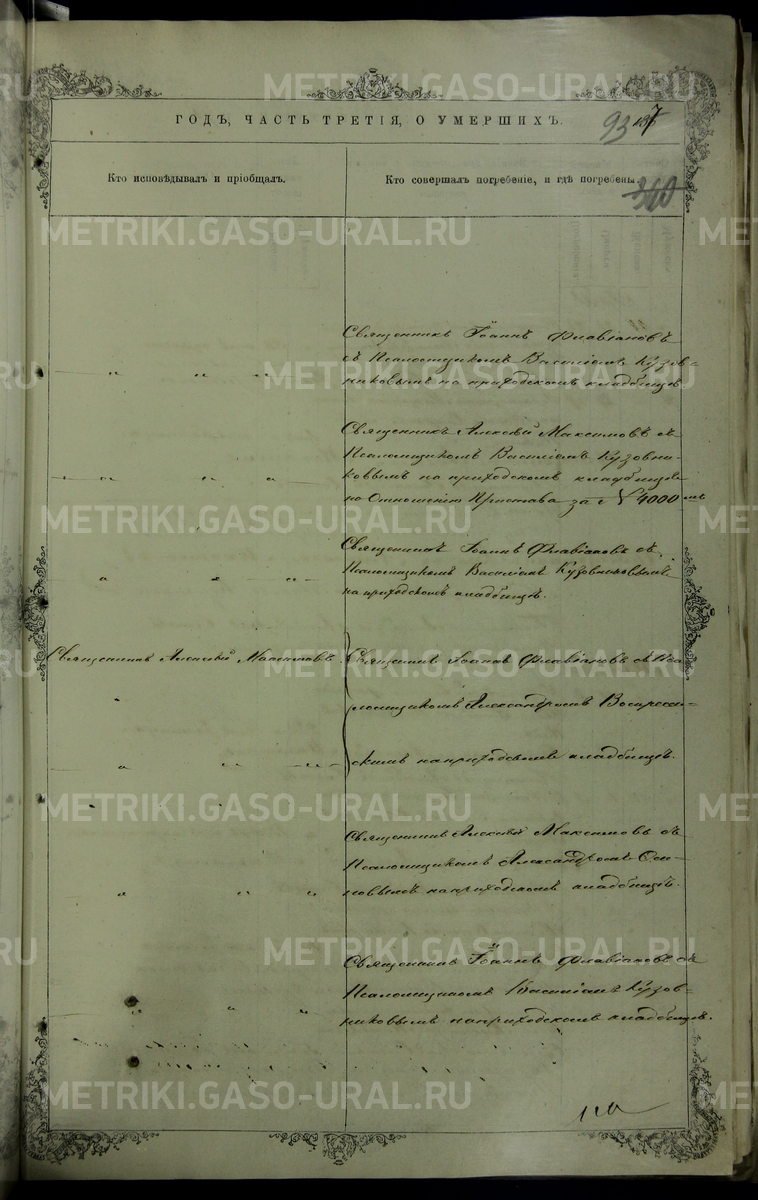 ГОДЪ, ЧАСТЬ ТРЕТІЯ, О УМЕРШИХЪ.
93
Кто исповѣдывалъ и пріобщалъ.
Кто совершалъ погребеніе, и гдѣ погребены.
340
Священникъ Іоаннъ Флавіановъ
съ Псаломщикомъ Василіемъ Кузов-
никовымъ на приходскомъ кладбищѣ
Священникъ Алексѣй Максимовъ съ
Псаломщикомъ Василіемъ Кузовни-
ковымъ на приходскомъ кладбищѣ
по Отношенію Пристава за № 4000мъ
Священникъ Іоаннъ Флавіановъ съ
Псаломщикомъ Василіемъ Кузовниковымъ
на приходскомъ кладбищѣ.
Священникъ Алексѣй Максимовъ
Священникъ Іоаннъ Флавіановъ съ Пса
ломщикомъ Александромъ Воскресен-
скимъ на приходскомъ кладбищѣ.
Священникъ Алексѣй Максимовъ съ
Псаломщикомъ Александромъ
на приходскомъ кладбищѣ.
Священникъ Іоаннъ Флавіановъ съ
Псаломщикомъ Василіемъ Кузов-
никовымъ на приходскомъ кладбищѣ.
METRIKI.GASO-URAL.RU